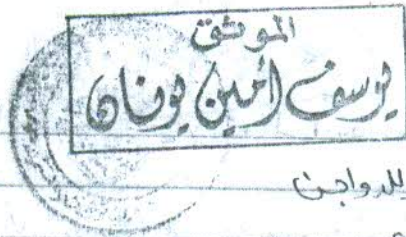 الموثق
يوسف أمين يونان
للدواجن